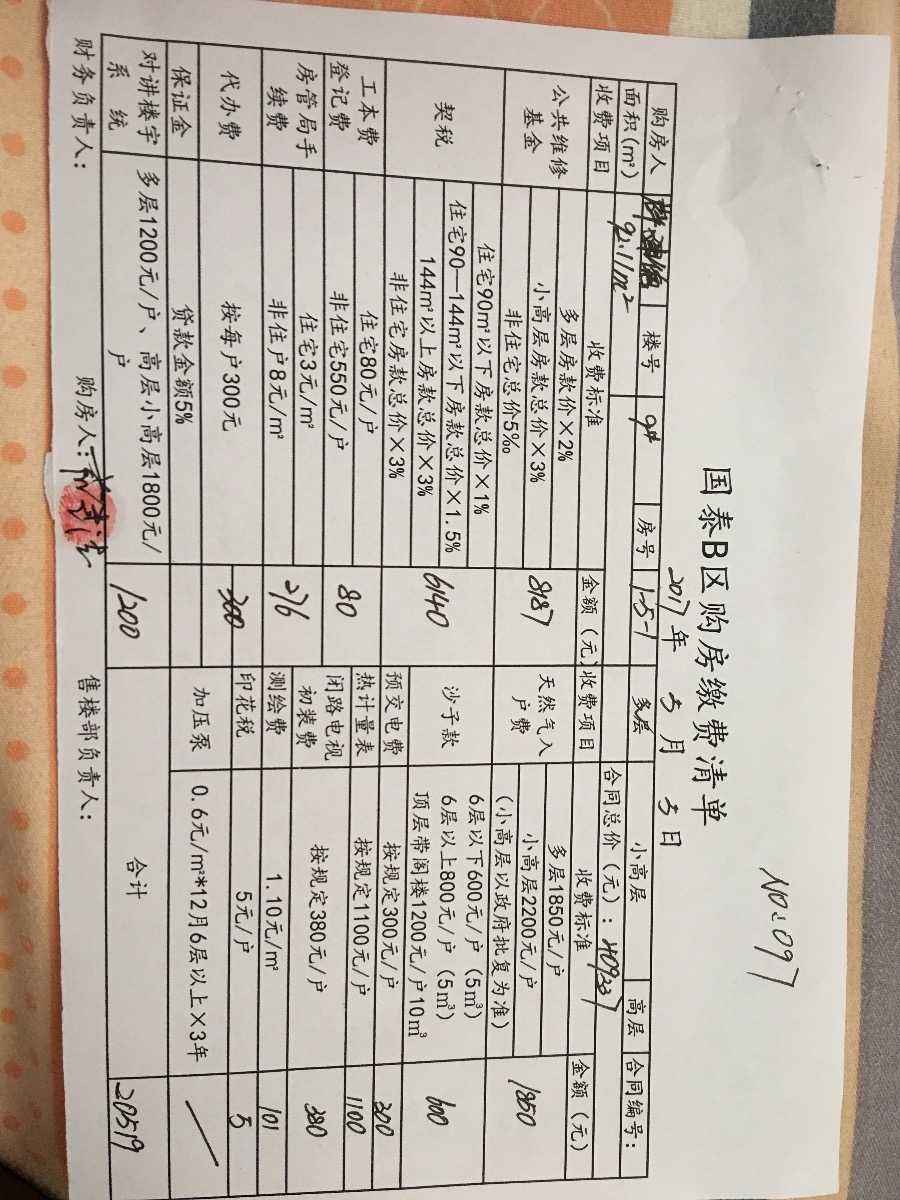 NO:097
国泰B区购房缴费清单
2017年5月5日
购房人 楼号 9# 房号 1-5-1 多层 小高层 高层 合同编号：
面积(m²) 92.11m² 合同总价（元）：409337
收费项目 收费标准 金额（元） 收费项目 收费标准 金额（元）
公共维修基金 多层房款价×2% 8187 天然气入户费 多层1850元/户 1850
小高层房款总价×3% 小高层2200元/户
非住宅总价5‰ （小高层以政府批复为准）
契税 住宅90m²以下房款总价×1% 6140 沙子款 6层以下600元/户（5m³） 600
住宅90—144m²以下房款总价×1.5% 6层以上800元/户（5m³）
144m²以上房款总价×3% 顶层带阁楼1200元/户10m³
非住宅房款总价×3% 预交电费 按规定300元/户 300
工本费登记费 住宅80元/户 80 热计量表 按规定1100元/户 1100
非住宅550元/户 闭路电视初装费 按规定380元/户 380
房管局手续费 住宅3元/m² 276
非住户8元/m² 测绘费 1.10元/m² 101
代办费 按每户300元 300 印花税 5元/户 5
保证金 贷款金额5% 加压泵 0.6元/m²*12月6层以上×3年
对讲楼宇系统 多层1200元/户、高层小高层1800元/户 1200 合计 20519
财务负责人： 购房人： 售楼部负责人：